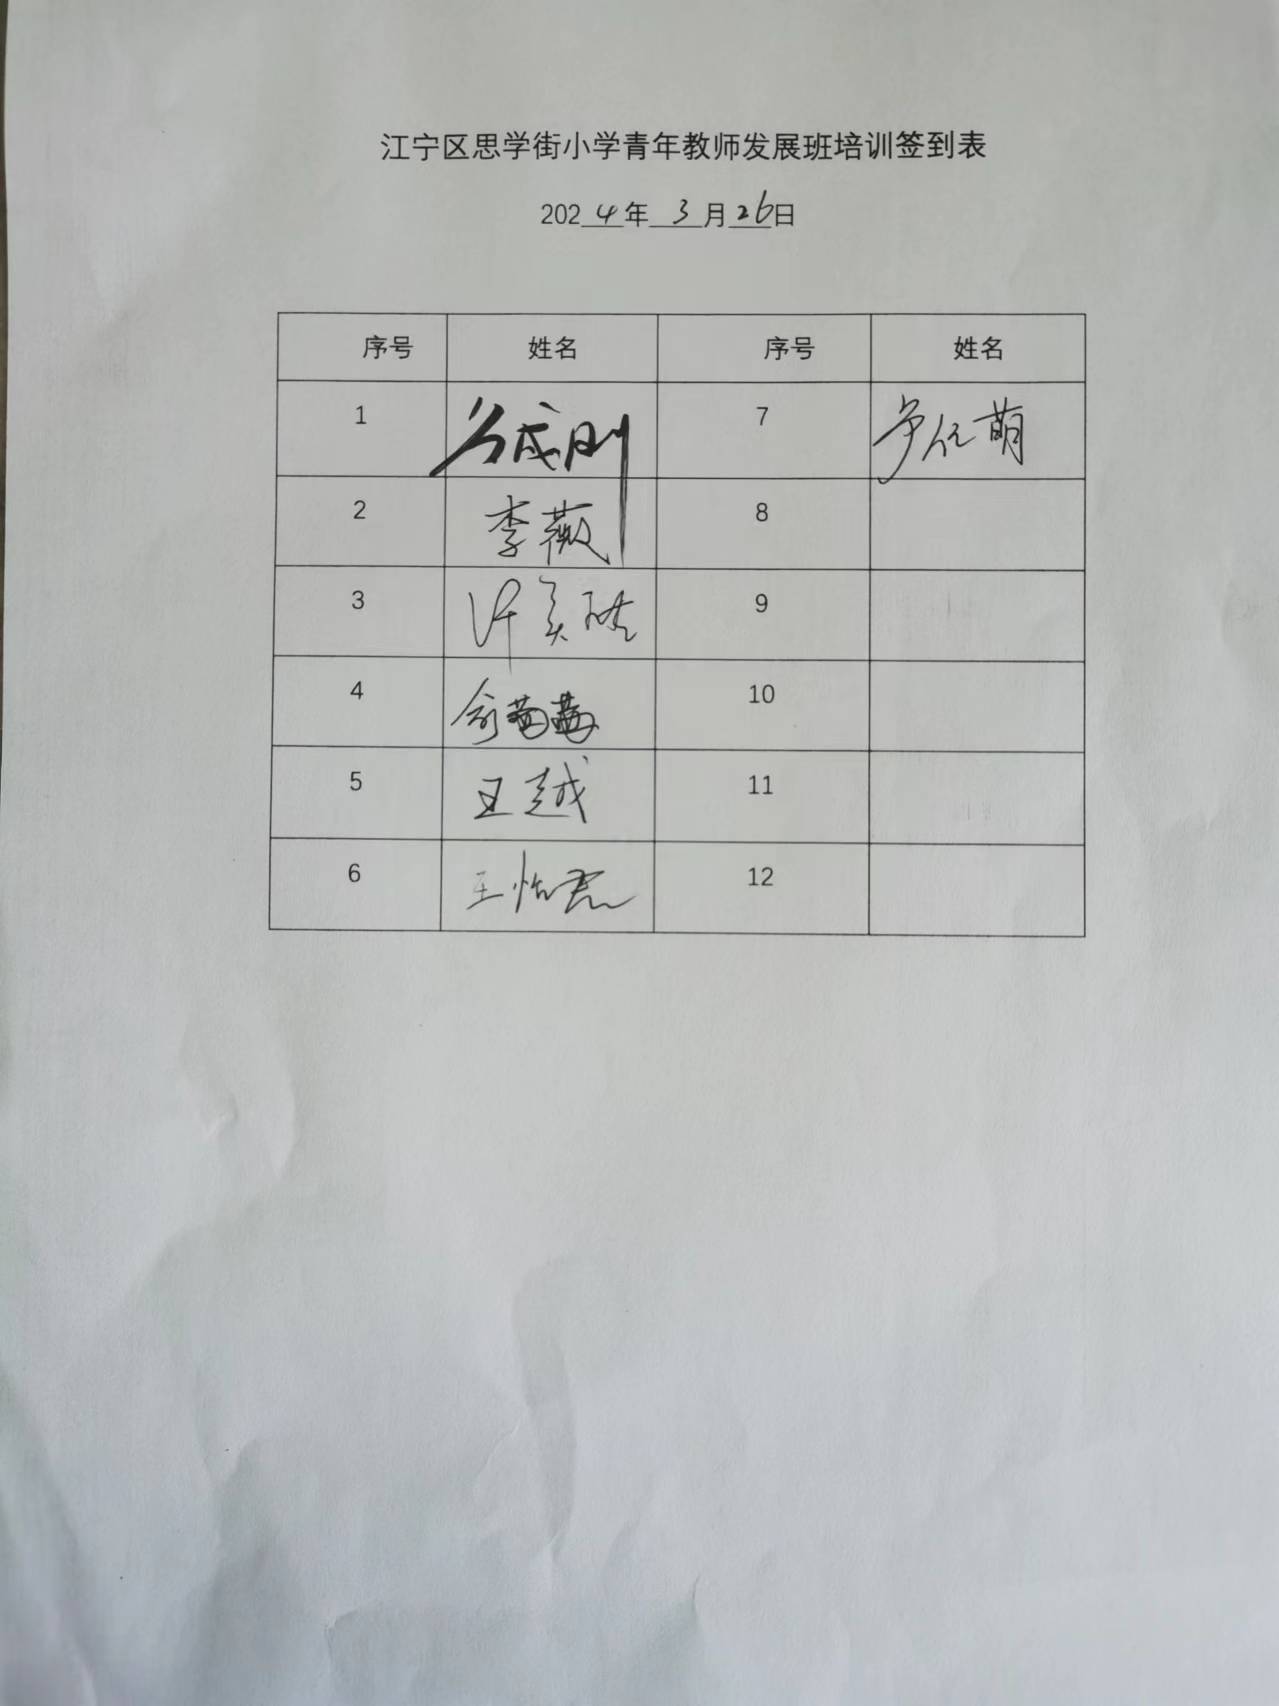 江宁区思学街小学青年教师发展班培训签到表
2024年3月26日
序号 姓名 序号 姓名
1 7
2 李薇 8
3 9
4 俞茵茵 10
5 王越 11
6 王怡君 12